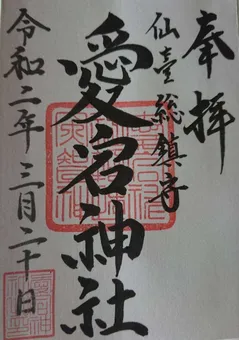 奉拝
仙臺総鎮守
愛宕神社
令和二年三月二十日